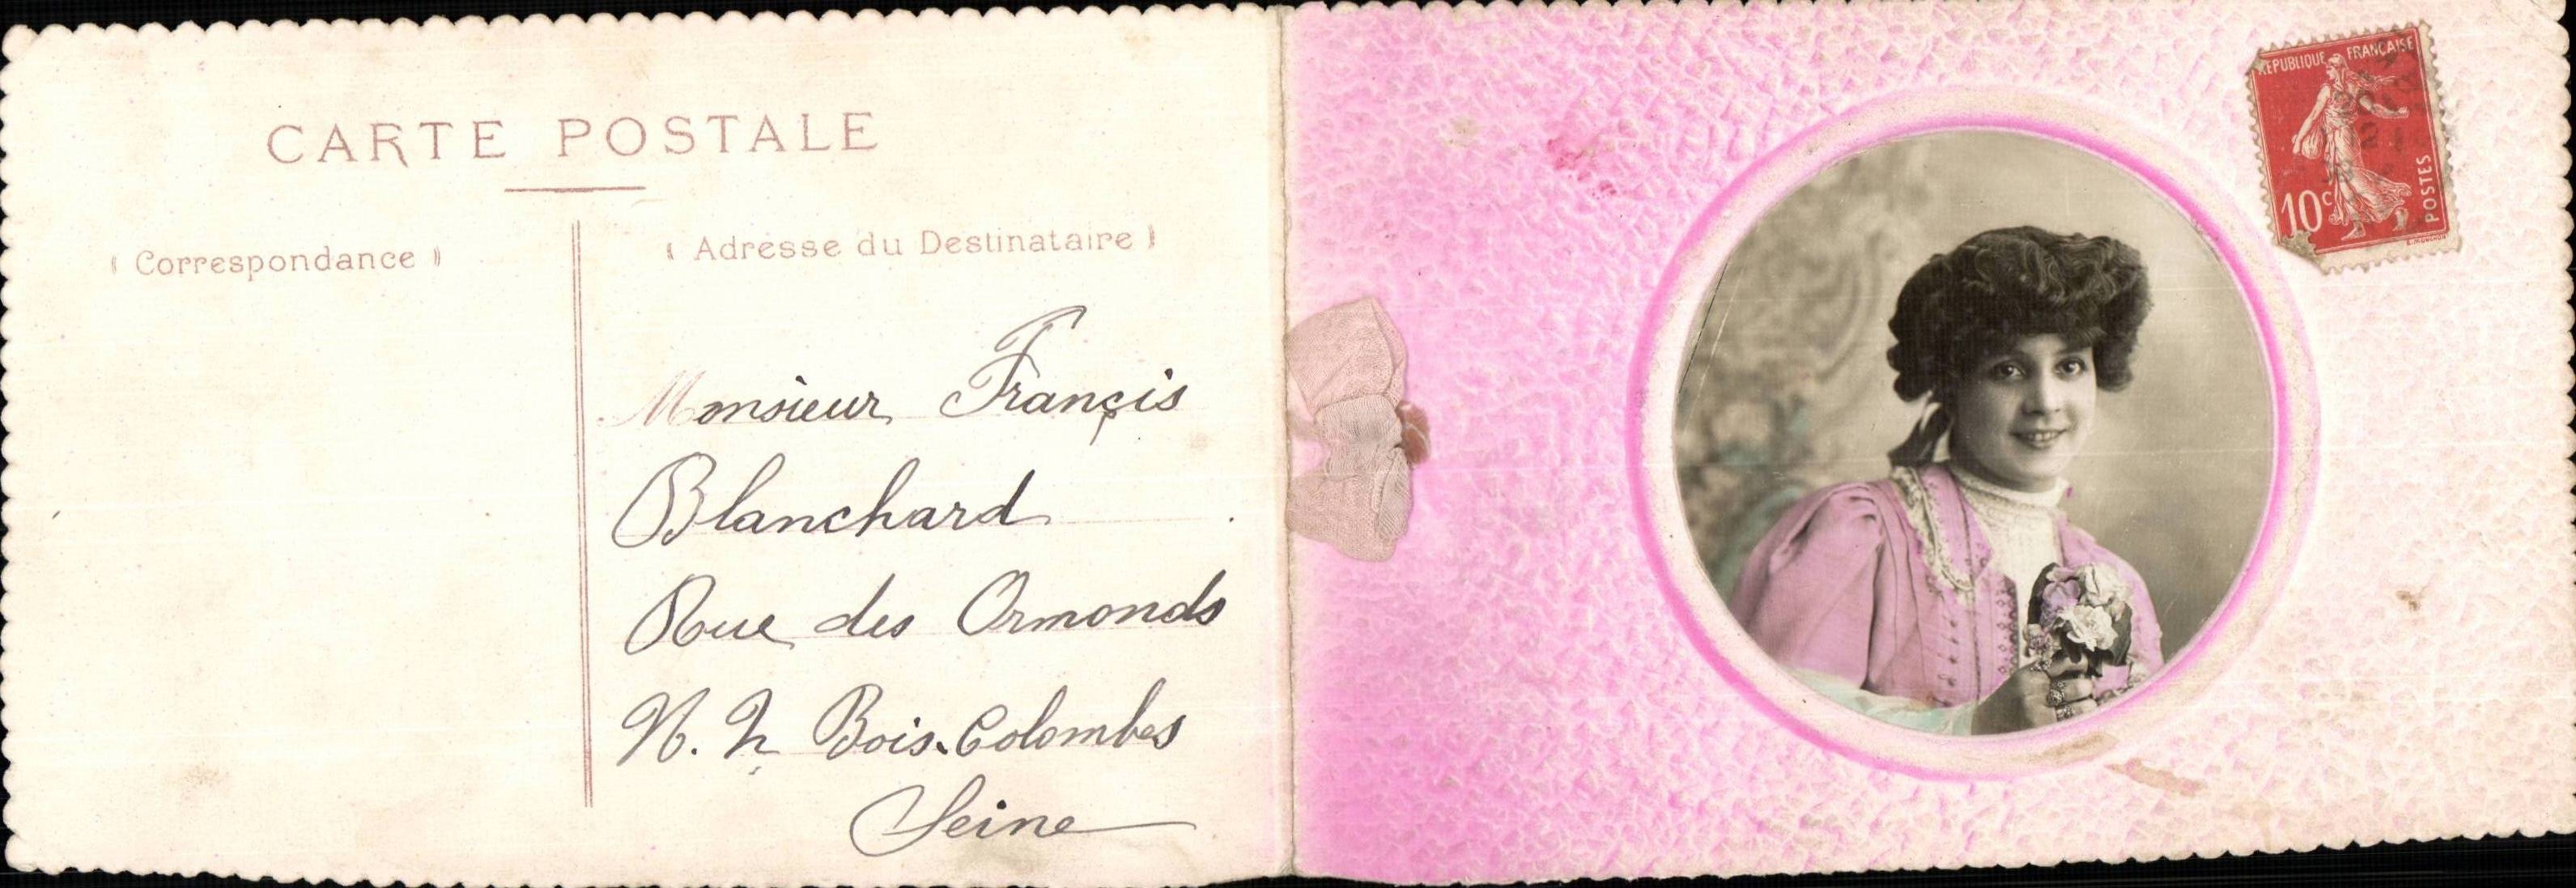 CARTE POSTALE
( Correspondance )
( Adresse du Destinataire )
Monsieur Françis
Blanchard
Rue des Ormonds
N. 2 Bois-Colombes
Seine
REPUBLIQUE FRANÇAISE
10c
POSTES